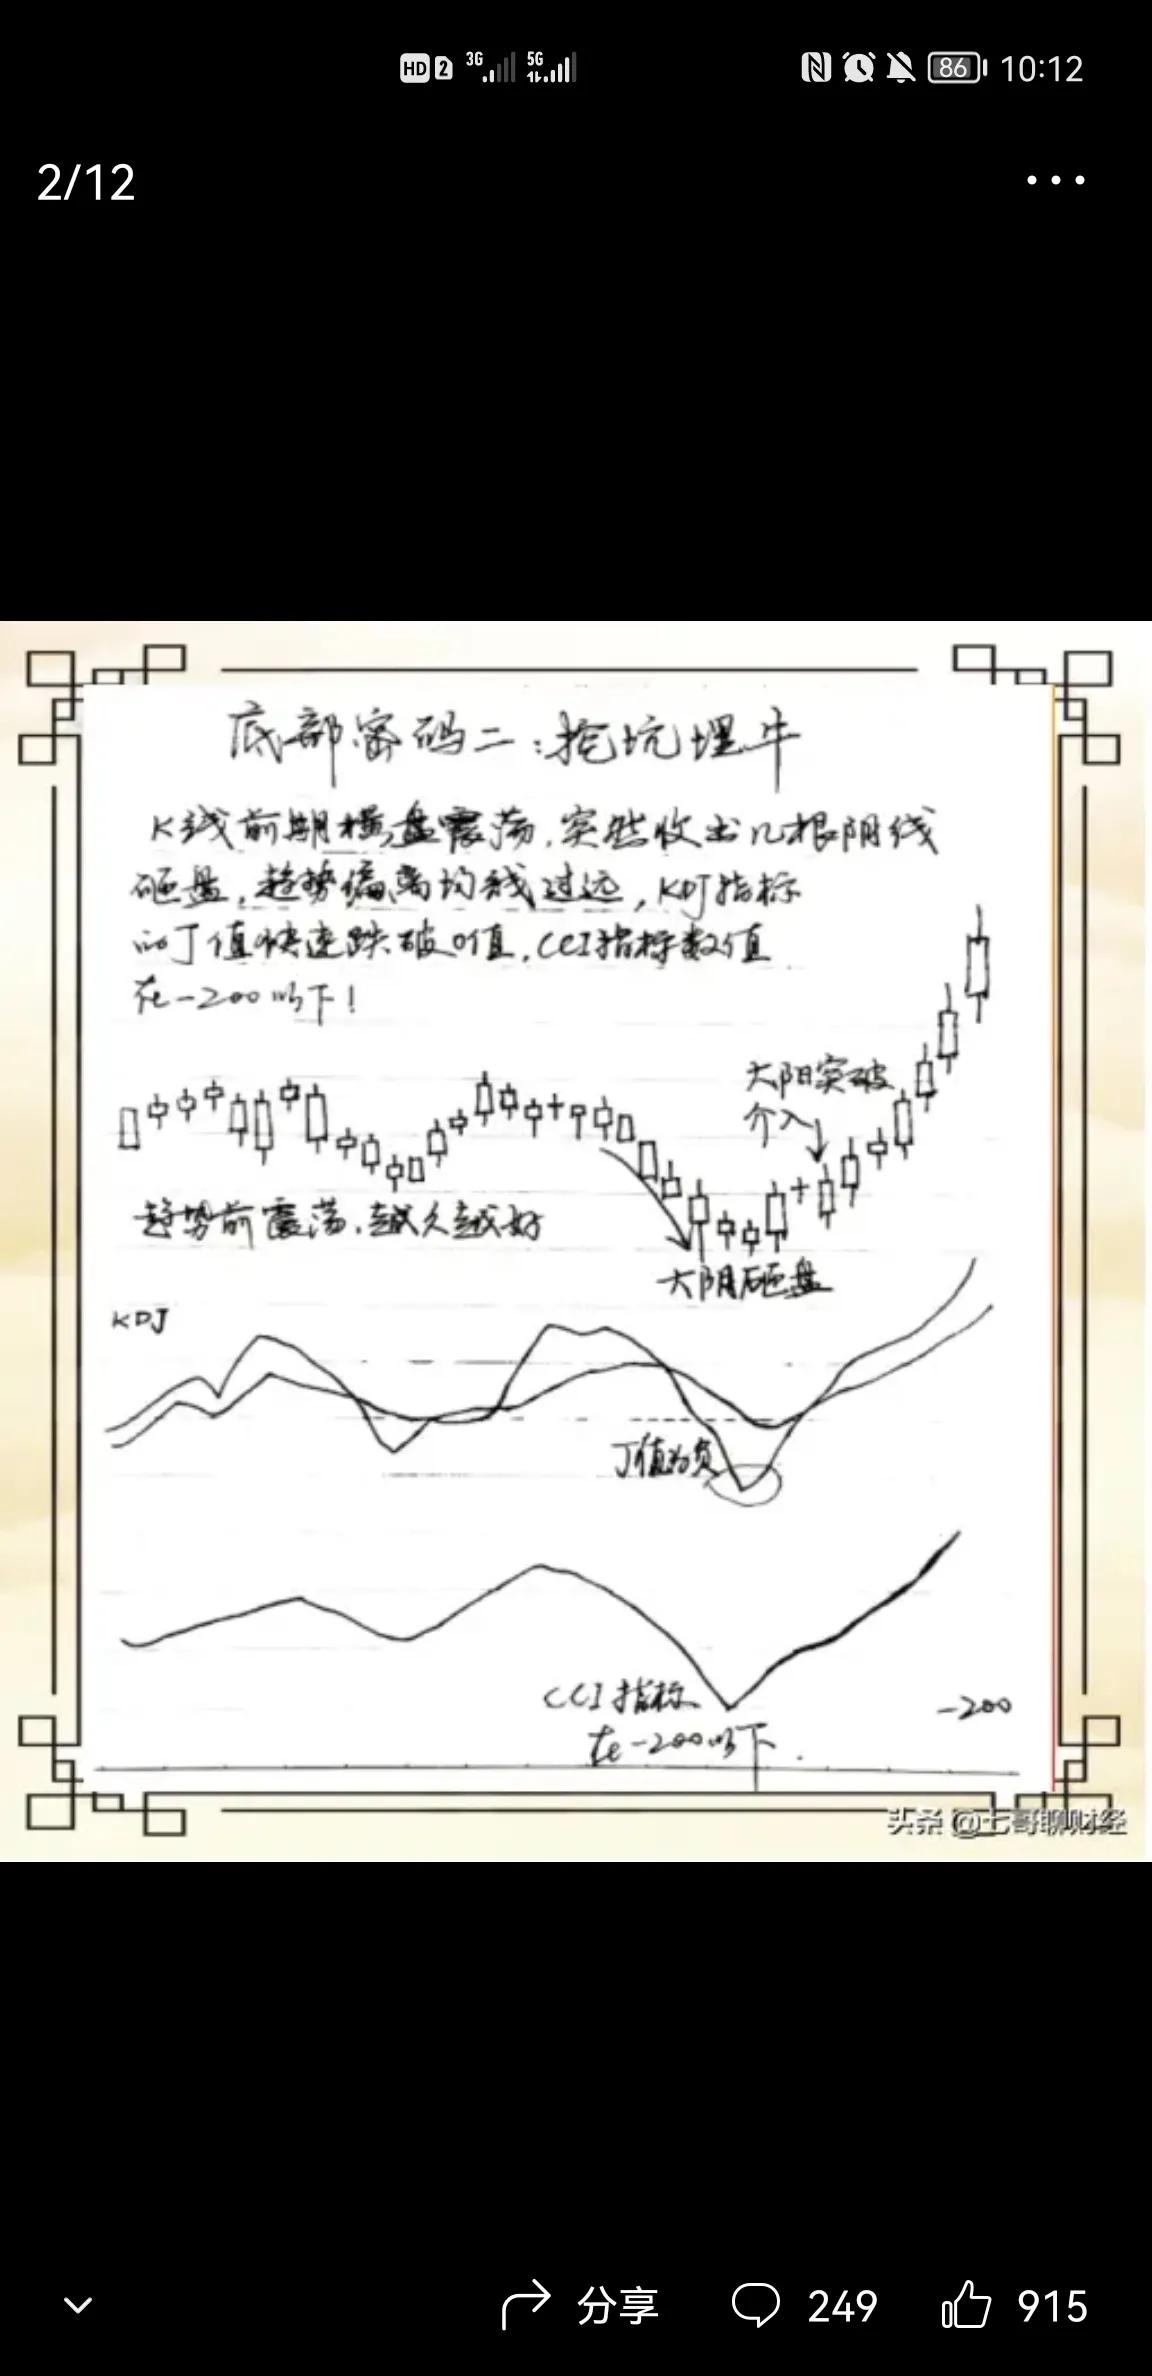 HD 2 3G 5G 86 10:12
2/12
底部密码二:挖坑埋牛
K线前期横盘震荡,突然收出几根阴线
砸盘,趋势偏离均线过远,KDJ指标
的J值快速跌破0值,CCI指标数值
在-200以下!
大阳突破
介入
趋势前震荡,越久越好
大阴砸盘
KDJ
J值为负
CCI指标
在-200以下
-200
头条 @七哥聊财经
分享 249 915